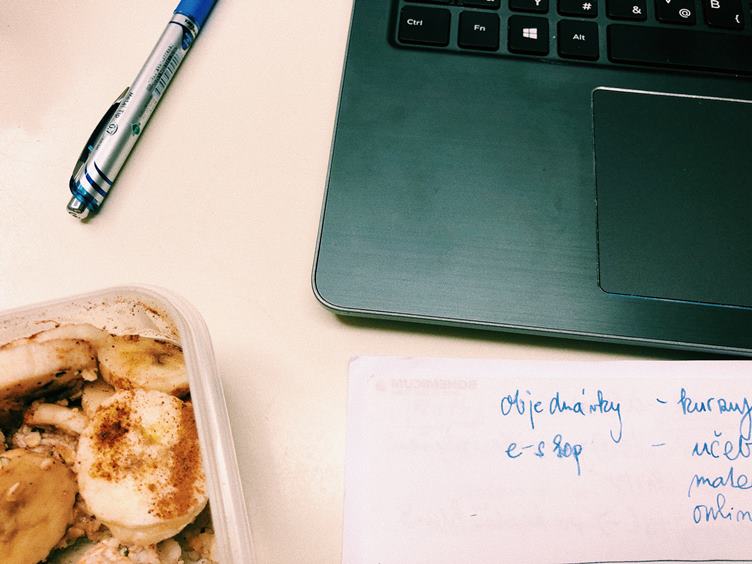 Ctrl
Fn
Alt
Y
#
&
@
B
{
0.7
objednávky - kurzy
e-shop - učeb
mate
onlin